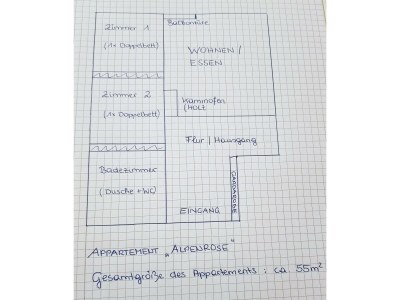 Zimmer 1
(1x Doppelbett)
Balkontüre
WOHNEN /
ESSEN
Zimmer 2
(1x Doppelbett)
Kaminofen
(HOLZ
Flur / Hausgang
Badezimmer
(Dusche + WC)
GARDAROBE
EINGANG
APPARTEMENT „ALPENROSE"
Gesamtgröße des Appartements : ca. 55m²